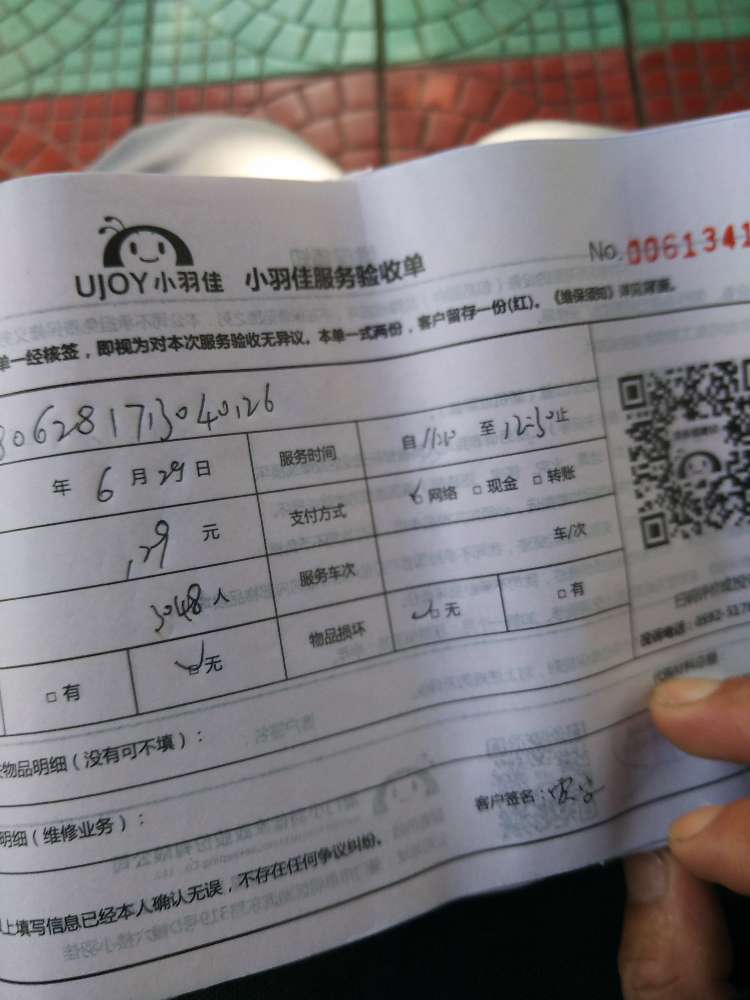 UJOY小羽佳 小羽佳服务验收单 No.0061341
单一经核签，即视为对本次服务验收无异议。本单一式两份，客户留存一份(红)。《维保须知》详见背面。
30628171304012б
年 6 月 29 日 服务时间 自 11:00 至 12:30 止
129 元 支付方式 网络 □ 现金 □ 转账
3048 人 服务车次 车/次
□ 有 □ 无 物品损坏 □ 无 □ 有
物品明细（没有可不填）：
明细（维修业务）：
客户签名：
上填写信息已经本人确认无误，不存在任何争议纠纷。